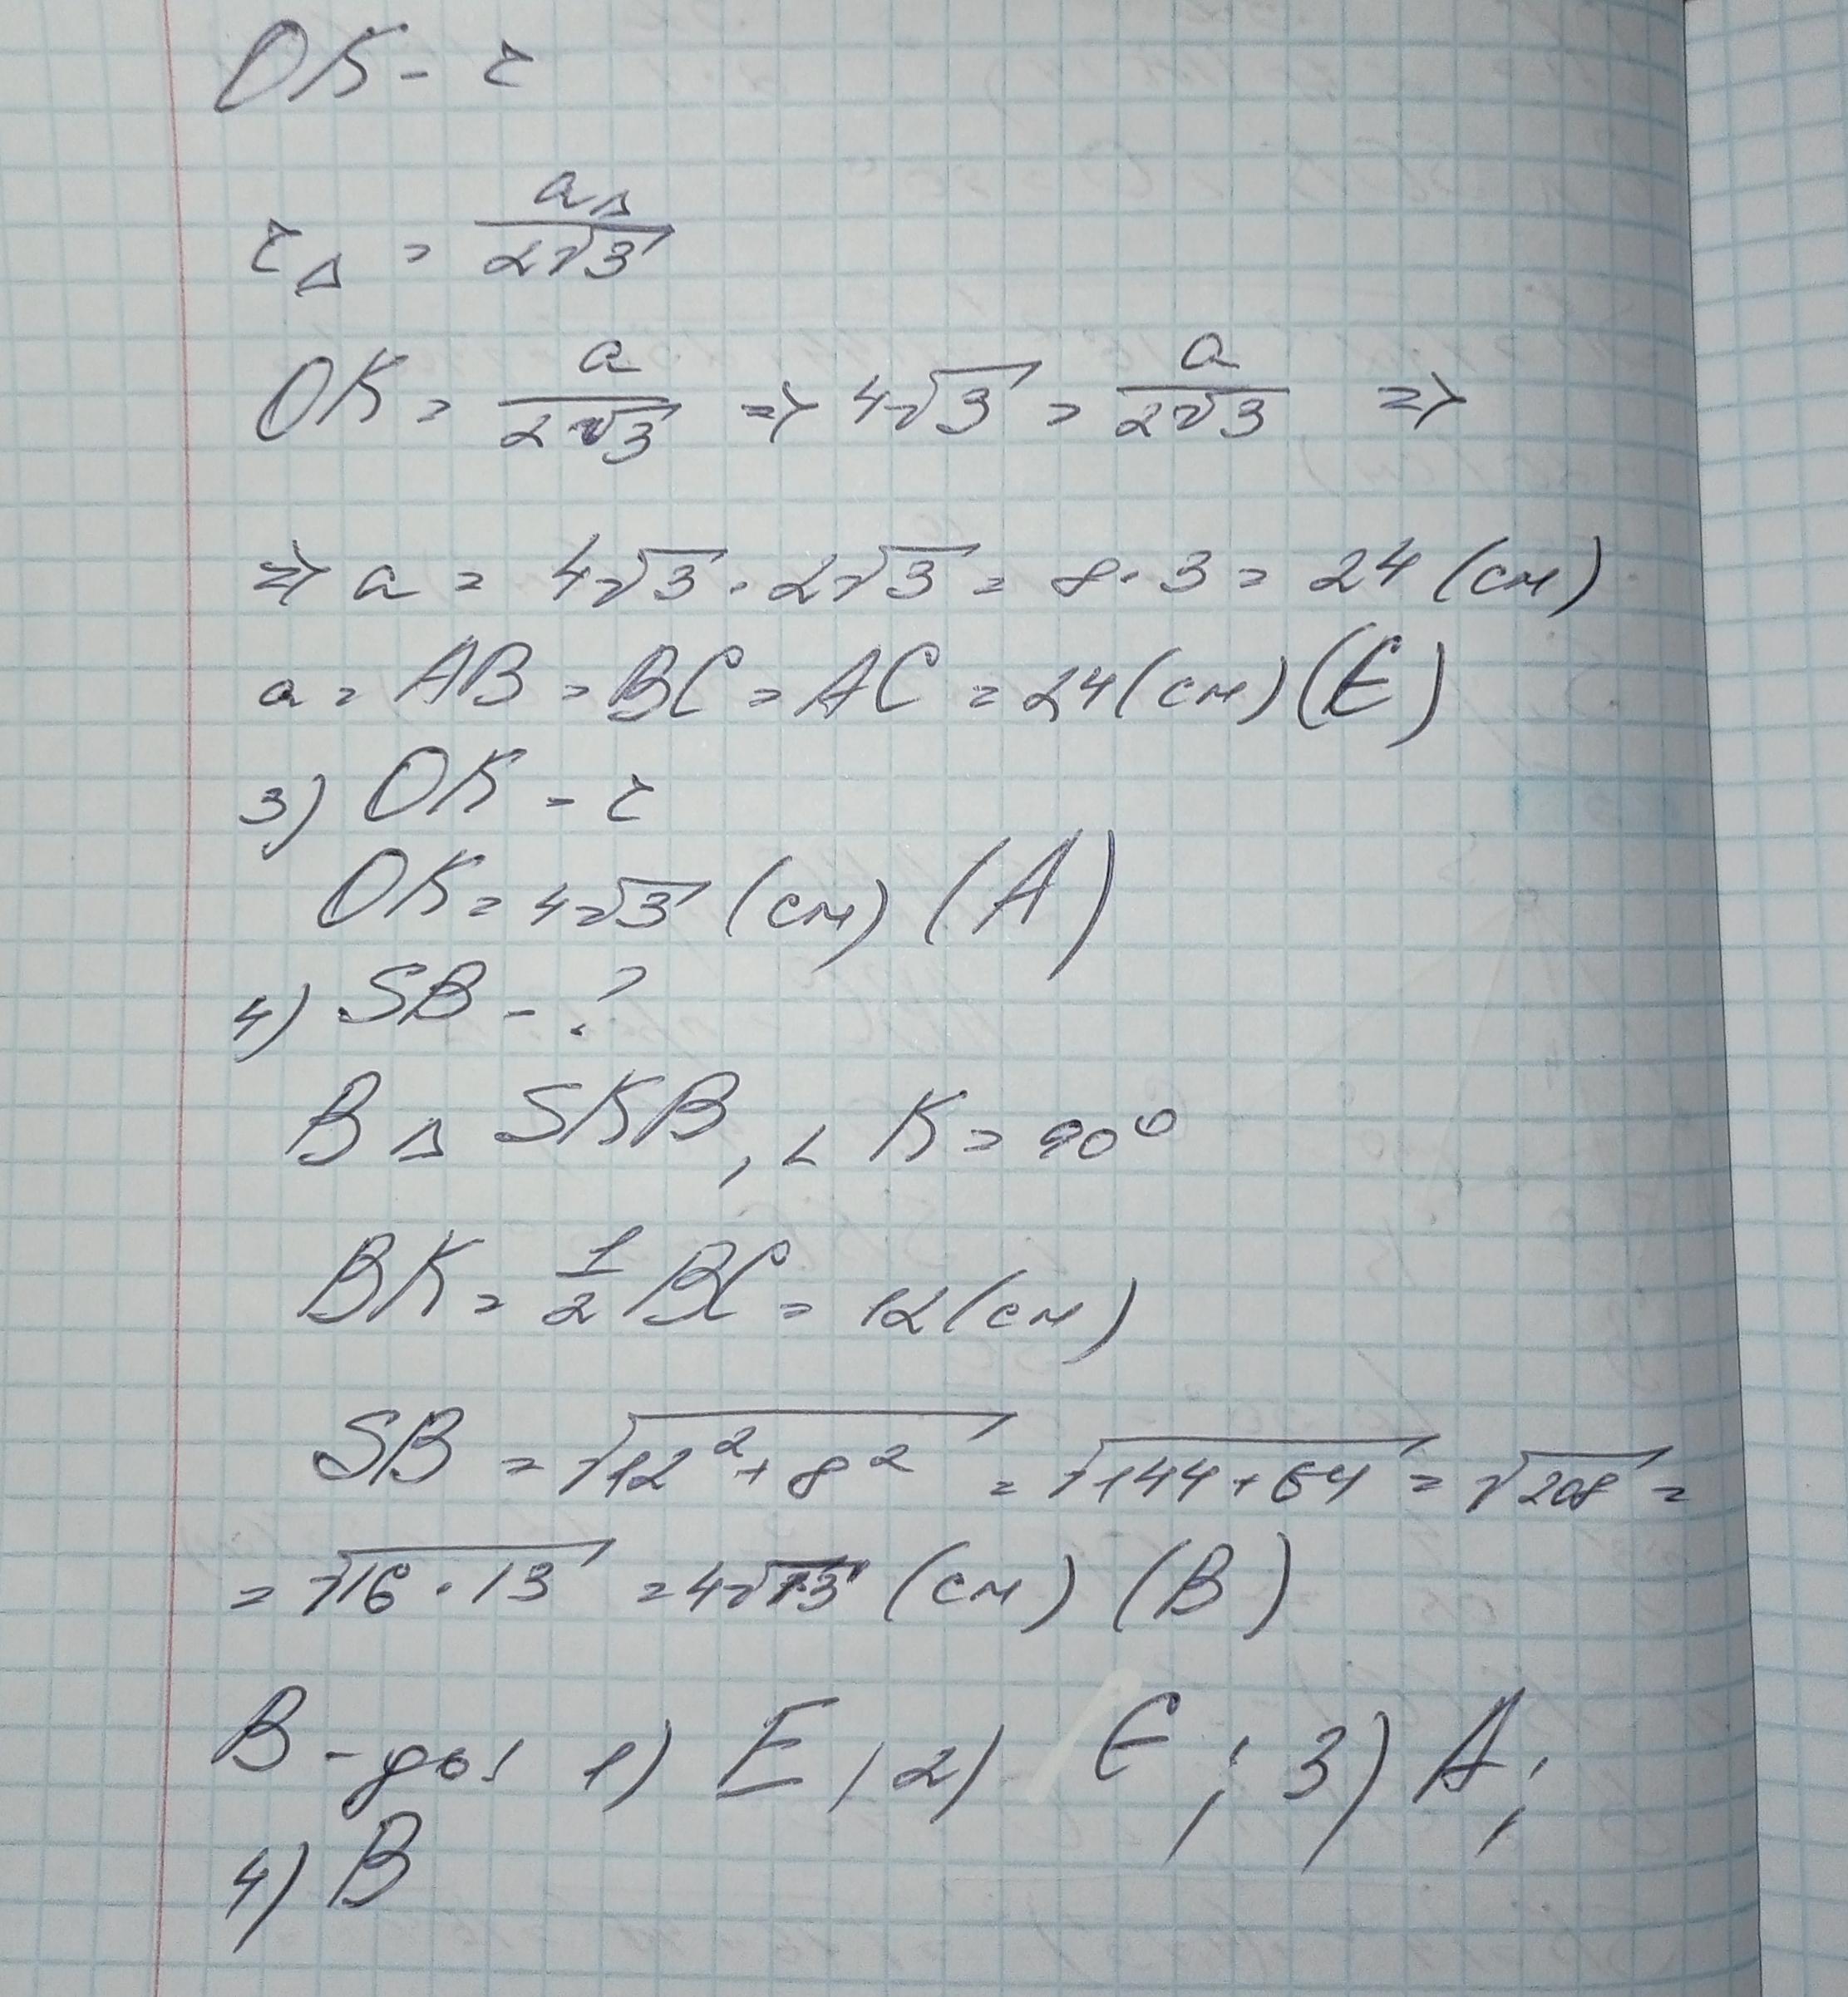 OK - r
r△ = a△/2√3
OK = a/2√3 => 4√3 = a/2√3 =>
=> a = 4√3 · 2√3 = 8 · 3 = 24 (см)
a = AB = BC = AC = 24 (см) (E)
3) OK - r
OK = 4√3 (см) (A)
4) SB - ?
В △ SKB, ∠ K = 90°
BK = 1/2 BC = 12 (см)
SB = √12² + 8² = √144 + 64 = √208 =
= √16 · 13 = 4√13 (см) (B)
В-дь: 1) E; 2) E; 3) A;
4) B